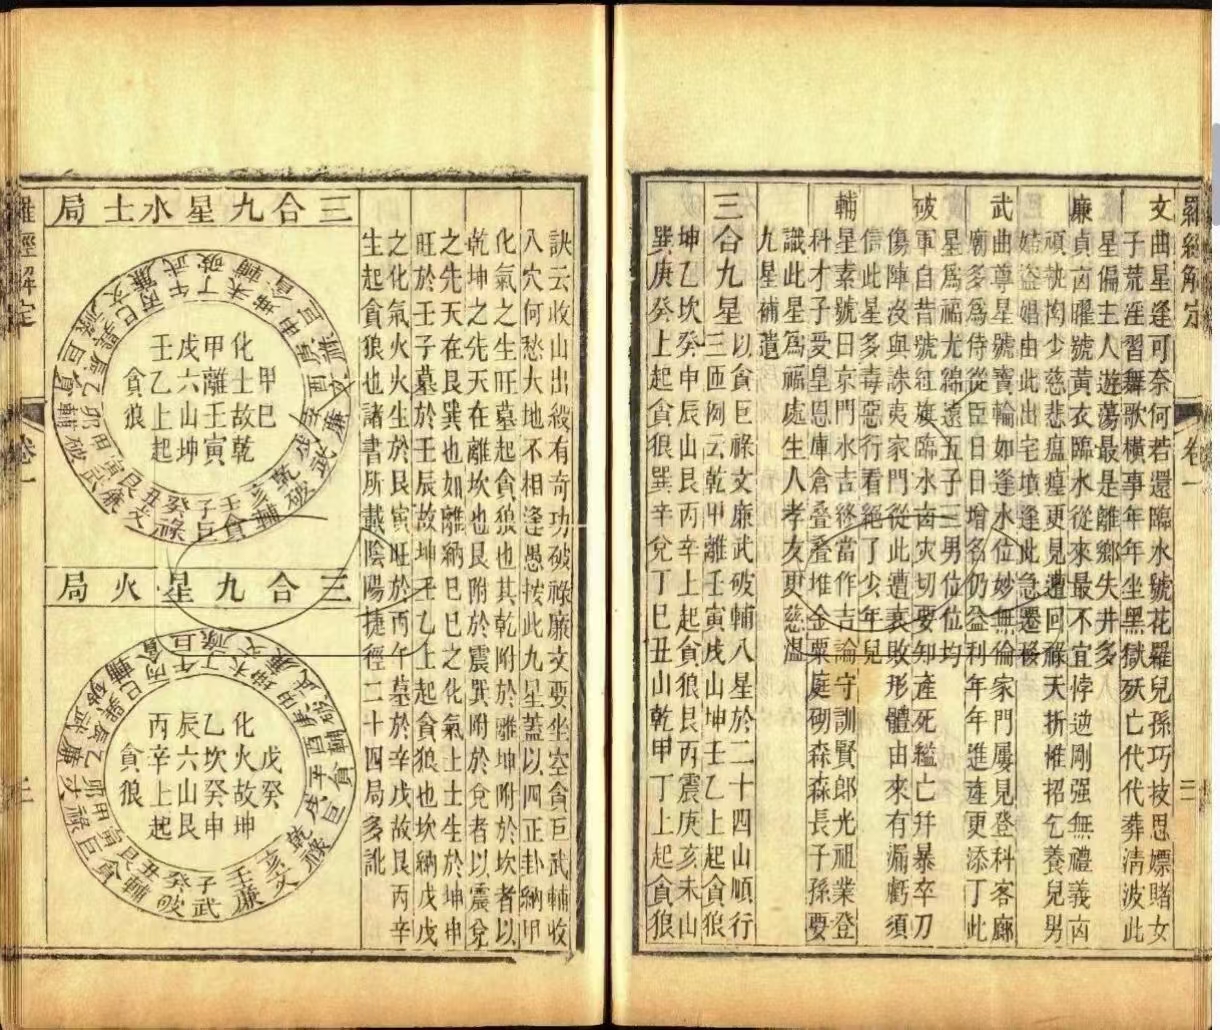 羅經解定　卷一
文曲星逢可奈何若還臨水號花羅兒孫巧技思嫖賭女
子荒淫習舞歌橫事年年坐黑獄殀亡代代葬清波此
星偏主人遊蕩最是離鄉失井多
廉貞凶曜號黃衣臨水從來最不宜悖逆剛强無禮義凶
頑執拘少慈悲瘟㾮更見遭回祿夭折惟招乞養兒男
盜婚由此出宅墳逢此急遷移
武曲尊星號寶輪如逢水位妙無倫家門屢見登科客廊
廟多為侍從臣日日增名仍益利年年進產更添丁此
星為福尤綿遠五子三男位位均
破軍自昔號紅旗臨水凶灾切要知產死亡幷暴卒刀
傷陣沒與誅夷家門從此遭衰敗形體由來有漏虧須
信此星多毒惡行看絕了少年兒
輔星素號曰京門水吉終當作吉論守訓賢郎光祖業登
科才子受皇恩庫倉叠叠堆金粟庭砌森森長子孫要
識此星為福處生人孝友更慈溫
九星補遺
三合九星以貪巨祿文廉武破輔八星於二十四山順行
三匝例云乾甲離壬寅戌山坤壬乙上起貪狼
坤乙坎癸申辰山艮丙辛上起貪狼艮丙震庚亥未山
巽庚癸上起貪狼巽辛兌丁巳丑山乾甲丁上起貪狼
訣云收山出殺有奇功破祿廉文要坐空貪巨武輔收
入穴何愁大地不相逢愚按此九星蓋以四正卦納甲
化氣之生旺墓起貪狼也其乾附於離坤附於坎者以
乾坤之先天在離坎也艮附於震巽附於兌者以震兌
之先天在艮巽也如離納己巳之化氣土土生於坤申
旺於壬子墓於壬辰故坤壬乙上起貪狼也坎納戊戊
之化氣火火生於艮寅旺於丙午墓於辛戌故艮丙辛
生起貪狼也諸書所載陰陽捷徑二十四局多訛
三合九星水土局
甲巳
化土故乾
甲離壬寅
戌六山坤
壬乙上起
貪狼
壬子癸丑艮寅甲卯乙辰巽巳丙午丁未坤申庚酉辛戌乾亥
貪巨祿文廉武破輔貪巨祿文廉武破輔貪巨祿文廉武破輔
三合九星火局
戊癸
化火故坤
乙坎癸申
辰六山艮
丙辛上起
貪狼
丙午丁未坤申庚酉辛戌乾亥壬子癸丑艮寅甲卯乙辰巽巳
貪巨祿文廉武破輔貪巨祿文廉武破輔貪巨祿文廉武破輔
羅經解定　卷一